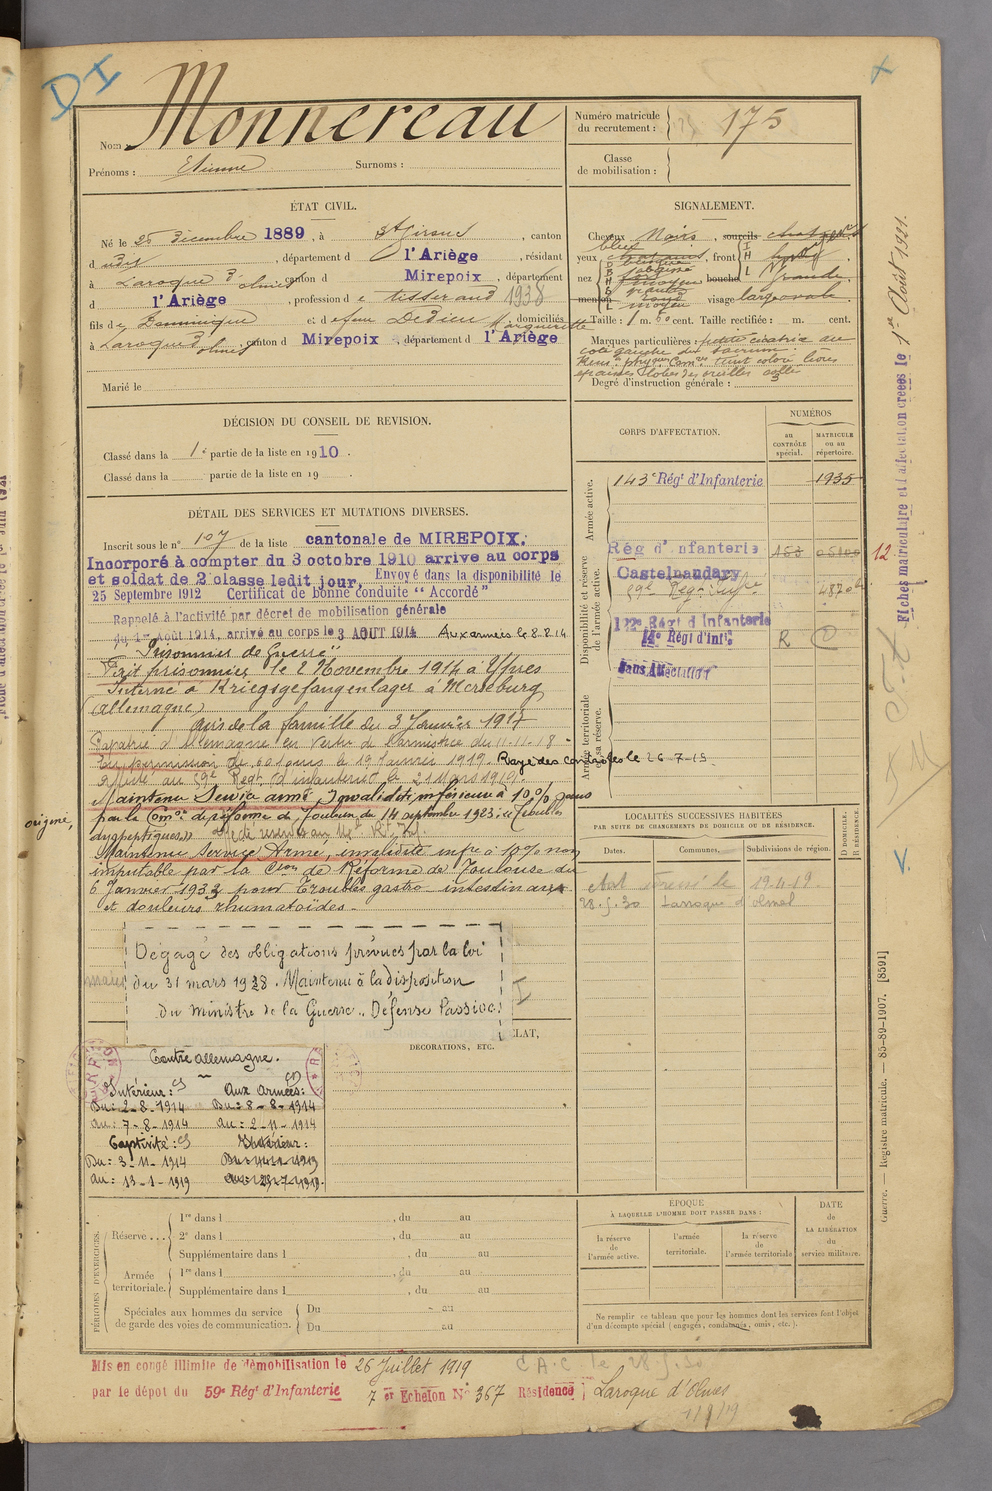 DI
Nom : Monnereau
Prénoms : Etienne Surnoms :
Numéro matricule du recrutement : 175
Classe de mobilisation :
ÉTAT CIVIL.
Né le 25 Décembre 1889, à St Girons, canton
d udit, département d l'Ariège, résidant
à Laroque d'olmes, canton d Mirepoix, département
d l'Ariège, profession de tisserand 1938
fils de Dominique et de feue Dedieu Marguerite, domiciliés
à Laroque d'olmes, canton d Mirepoix, département d l'Ariège
Marié le
SIGNALEMENT.
Cheveux Noirs, sourcils
yeux bleus, front
nez bouche grande
menton visage large ovale
Taille : 1 m. 60 cent. Taille rectifiée : m. cent.
Marques particulières : petite cicatrice au
cote gauche du
teint coloré lèvres
épaisses lobes des oreilles collés
Degré d'instruction générale : 3
DÉCISION DU CONSEIL DE REVISION.
Classé dans la 1e partie de la liste en 1910.
Classé dans la partie de la liste en 19 .
CORPS D'AFFECTATION.
NUMÉROS
au CONTRÔLE spécial.
MATRICULE ou au répertoire.
Armée active.
143e Régt d'Infanterie 1935
Disponibilité et réserve de l'armée active.
Rég d'Infanterie
Castelnaudary
59e Regt Inf
112e Régt d'Infanterie
14e Régt d'Infie R
Sans Affectation
Armée territoriale et sa réserve.
DÉTAIL DES SERVICES ET MUTATIONS DIVERSES.
Inscrit sous le n° 107 de la liste cantonale de MIREPOIX.
Incorporé à compter du 3 octobre 1910 arrive au corps
et soldat de 2 classe ledit jour. Envoyé dans la disponibilité le
25 Septembre 1912 Certificat de bonne conduite "Accordé"
Rappelé à l'activité par décret de mobilisation générale
du 1er Août 1914, arrivé au corps le 3 AOUT 1914 Aux armées le 8.8.14
"Prisonnier de Guerre"
Fait prisonnier le 2 Novembre 1914 à Ypres
Interné à Kriegsgefangenlager à Merseburg
(allemagne)
avis de la famille du 3 Janvier 1917
Rapatrié d'Allemagne en vertu de l'armistice du 11-11-18
En permission de 60 jours le 19 Janvier 1919. Rayé des contrôles le 26-7-19
Affecté au 59e Regt d'infanterie le 21 Mars 1919.
Maintenu Service armé Invalidité inférieure à 10%
par la Comon de réforme de Toulouse du 14 septembre 1923
origine,
dyspeptiques
Maintenu Service Armé, invalidité infre à 10% non
imputable par la Cion de Réforme de Toulouse du
6 Janvier 1932 pour troubles gastro-intestinaux
et douleurs rhumatoïdes-
Dégagé des obligations prévues par la loi
du 31 mars 1928. Maintenu à la disposition
du Ministre de la Guerre. Défense Passive.
CLAT,
DÉCORATIONS, ETC.
Contre allemagne.
Intérieur : CS Aux armées : CD
Du : 2-8-1914 Du : 8-8-1914
au : 7-8-1914 au : 2-11-1914
Captivité : CS Intérieur :
Du : 3-11-1914
au : 13-1-1919
LOCALITÉS SUCCESSIVES HABITÉES
PAR SUITE DE CHANGEMENTS DE DOMICILE OU DE RÉSIDENCE.
Dates. Communes. Subdivisions de région. D DOMICILE. R RÉSIDENCE
19-4-19.
28.5.30 Larroque d'olmes
PÉRIODES D'EXERCICES.
Réserve...
1re dans l , du au
2e dans l , du au
Supplémentaire dans l , du au
Armée territoriale.
1re dans l , du au
Supplémentaire dans l , du au
Spéciales aux hommes du service de garde des voies de communication.
Du au
Du au
ÉPOQUE
À LAQUELLE L'HOMME DOIT PASSER DANS :
la réserve de l'armée active.
l'armée territoriale.
la réserve de l'armée territoriale
DATE de LA LIBÉRATION du service militaire.
Ne remplir ce tableau que pour les hommes dont les services font l'objet
d'un décompte spécial (engagés, condamnés, omis, etc.).
Mis en congé illimité de démobilisation le 26 Juillet 1919 C.A.C le 28.5.30
par le dépôt du 59e Régt d'Infanterie 7er Echelon N° 367 Résidence : Laroque d'Olmes
Fiches matriculaire et d'affectation créées le 1er Août 1921.
12
Guerre. — Registre matricule. — 85-89-1907. [8591]